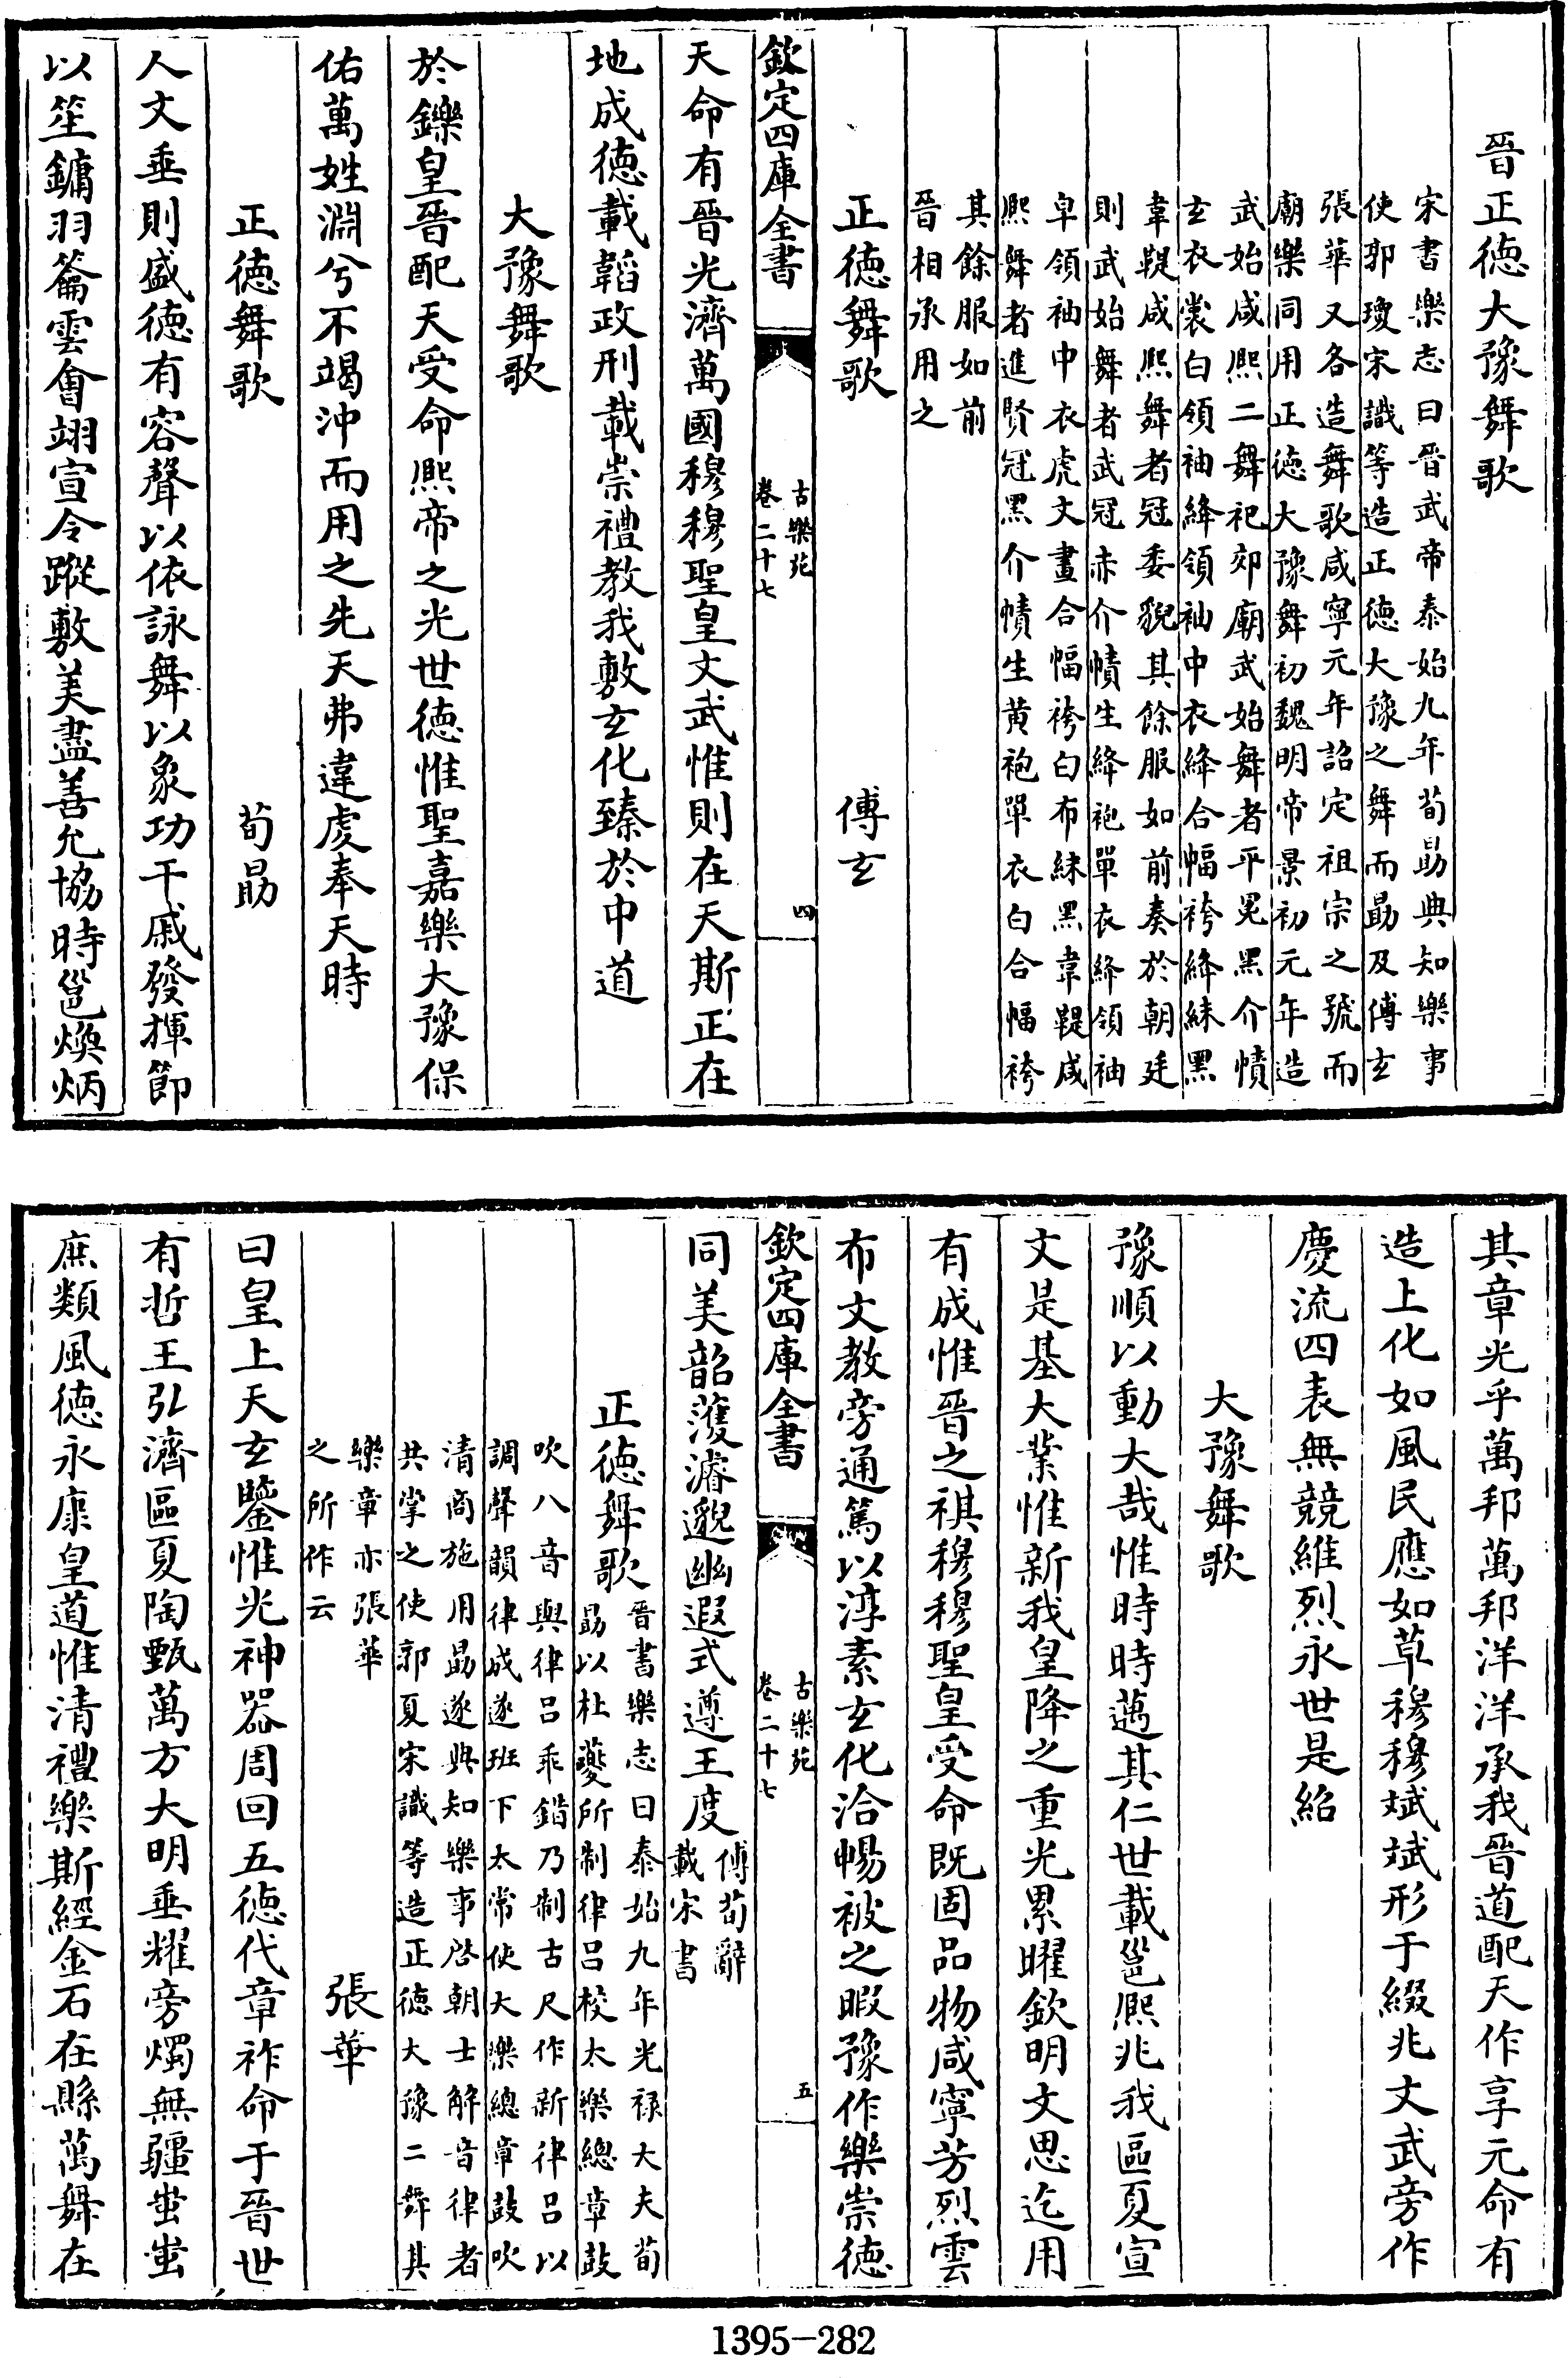 晉正徳大豫舞歌
宋書樂志曰晉武帝泰始九年荀勗典知樂事
使郭瓊宋識等造正徳大豫之舞而勗及傅玄
張華又各造舞歌咸寧元年詔定祖宗之號而
廟樂同用正徳大豫舞初魏明帝景初元年造
武始咸熙二舞祀郊廟武始舞者平冕黑介幘
玄衣裳白領袖絳領袖中衣絳合幅袴絳袜黑
韋鞮咸熙舞者冠委貌其餘服如前奏於朝廷
則武始舞者武冠赤介幘生絳袍單衣絳領袖
皁領袖中衣虎文畫合幅袴白布袜黑韋鞮咸
熙舞者進賢冠黑介幘生黄袍單衣白合幅袴
其餘服如前
晉相承用之
正徳舞歌 傅玄
欽定四庫全書 古樂苑 卷二十七 四
天命有晉光濟萬國穆穆聖皇文武惟則在天斯正在
地成徳載韜政刑載崇禮教我敷玄化臻於中道
大豫舞歌
於鑠皇晉配天受命熙帝之光世徳惟聖嘉樂大豫保
佑萬姓淵兮不竭沖而用之先天弗違虔奉天時
正徳舞歌 荀勗
人文垂則盛徳有容聲以依詠舞以象功干戚發揮節
以笙鏞羽籥雲會翊宣令蹤敷美盡善允協時邕煥炳
其章光乎萬邦萬邦洋洋承我晉道配天作享元命有
造上化如風民應如草穆穆斌斌形于綴兆文武旁作
慶流四表無競維烈永世是紹
大豫舞歌
豫順以動大哉惟時時邁其仁世載邕熙兆我區夏宣
文是基大業惟新我皇降之重光累曜欽明文思迄用
有成惟晉之祺穆穆聖皇受命既固品物咸寧芳烈雲
布文教旁通篤以淳素玄化洽暢被之暇豫作樂崇徳
欽定四庫全書 古樂苑 卷二十七 五
同美韶濩濬邈幽遐式遵王度 傅荀辭
載宋書
正徳舞歌 晉書樂志曰泰始九年光禄大夫荀
勗以杜夔所制律呂校太樂總章鼔
吹八音與律呂乖錯乃制古尺作新律呂以
調聲韻律成遂班下太常使大樂總章鼓吹
清商施用勗遂典知樂事啓朝士解音律者
共掌之使郭夏宋識等造正徳大豫二舞其
樂章亦張華
之所作云
張華
曰皇上天玄鑒惟光神器周回五徳代章祚命于晉世
有哲王弘濟區夏陶甄萬方大明垂耀旁燭無疆蚩蚩
庶類風徳永康皇道惟清禮樂斯經金石在縣萬舞在
1395-282